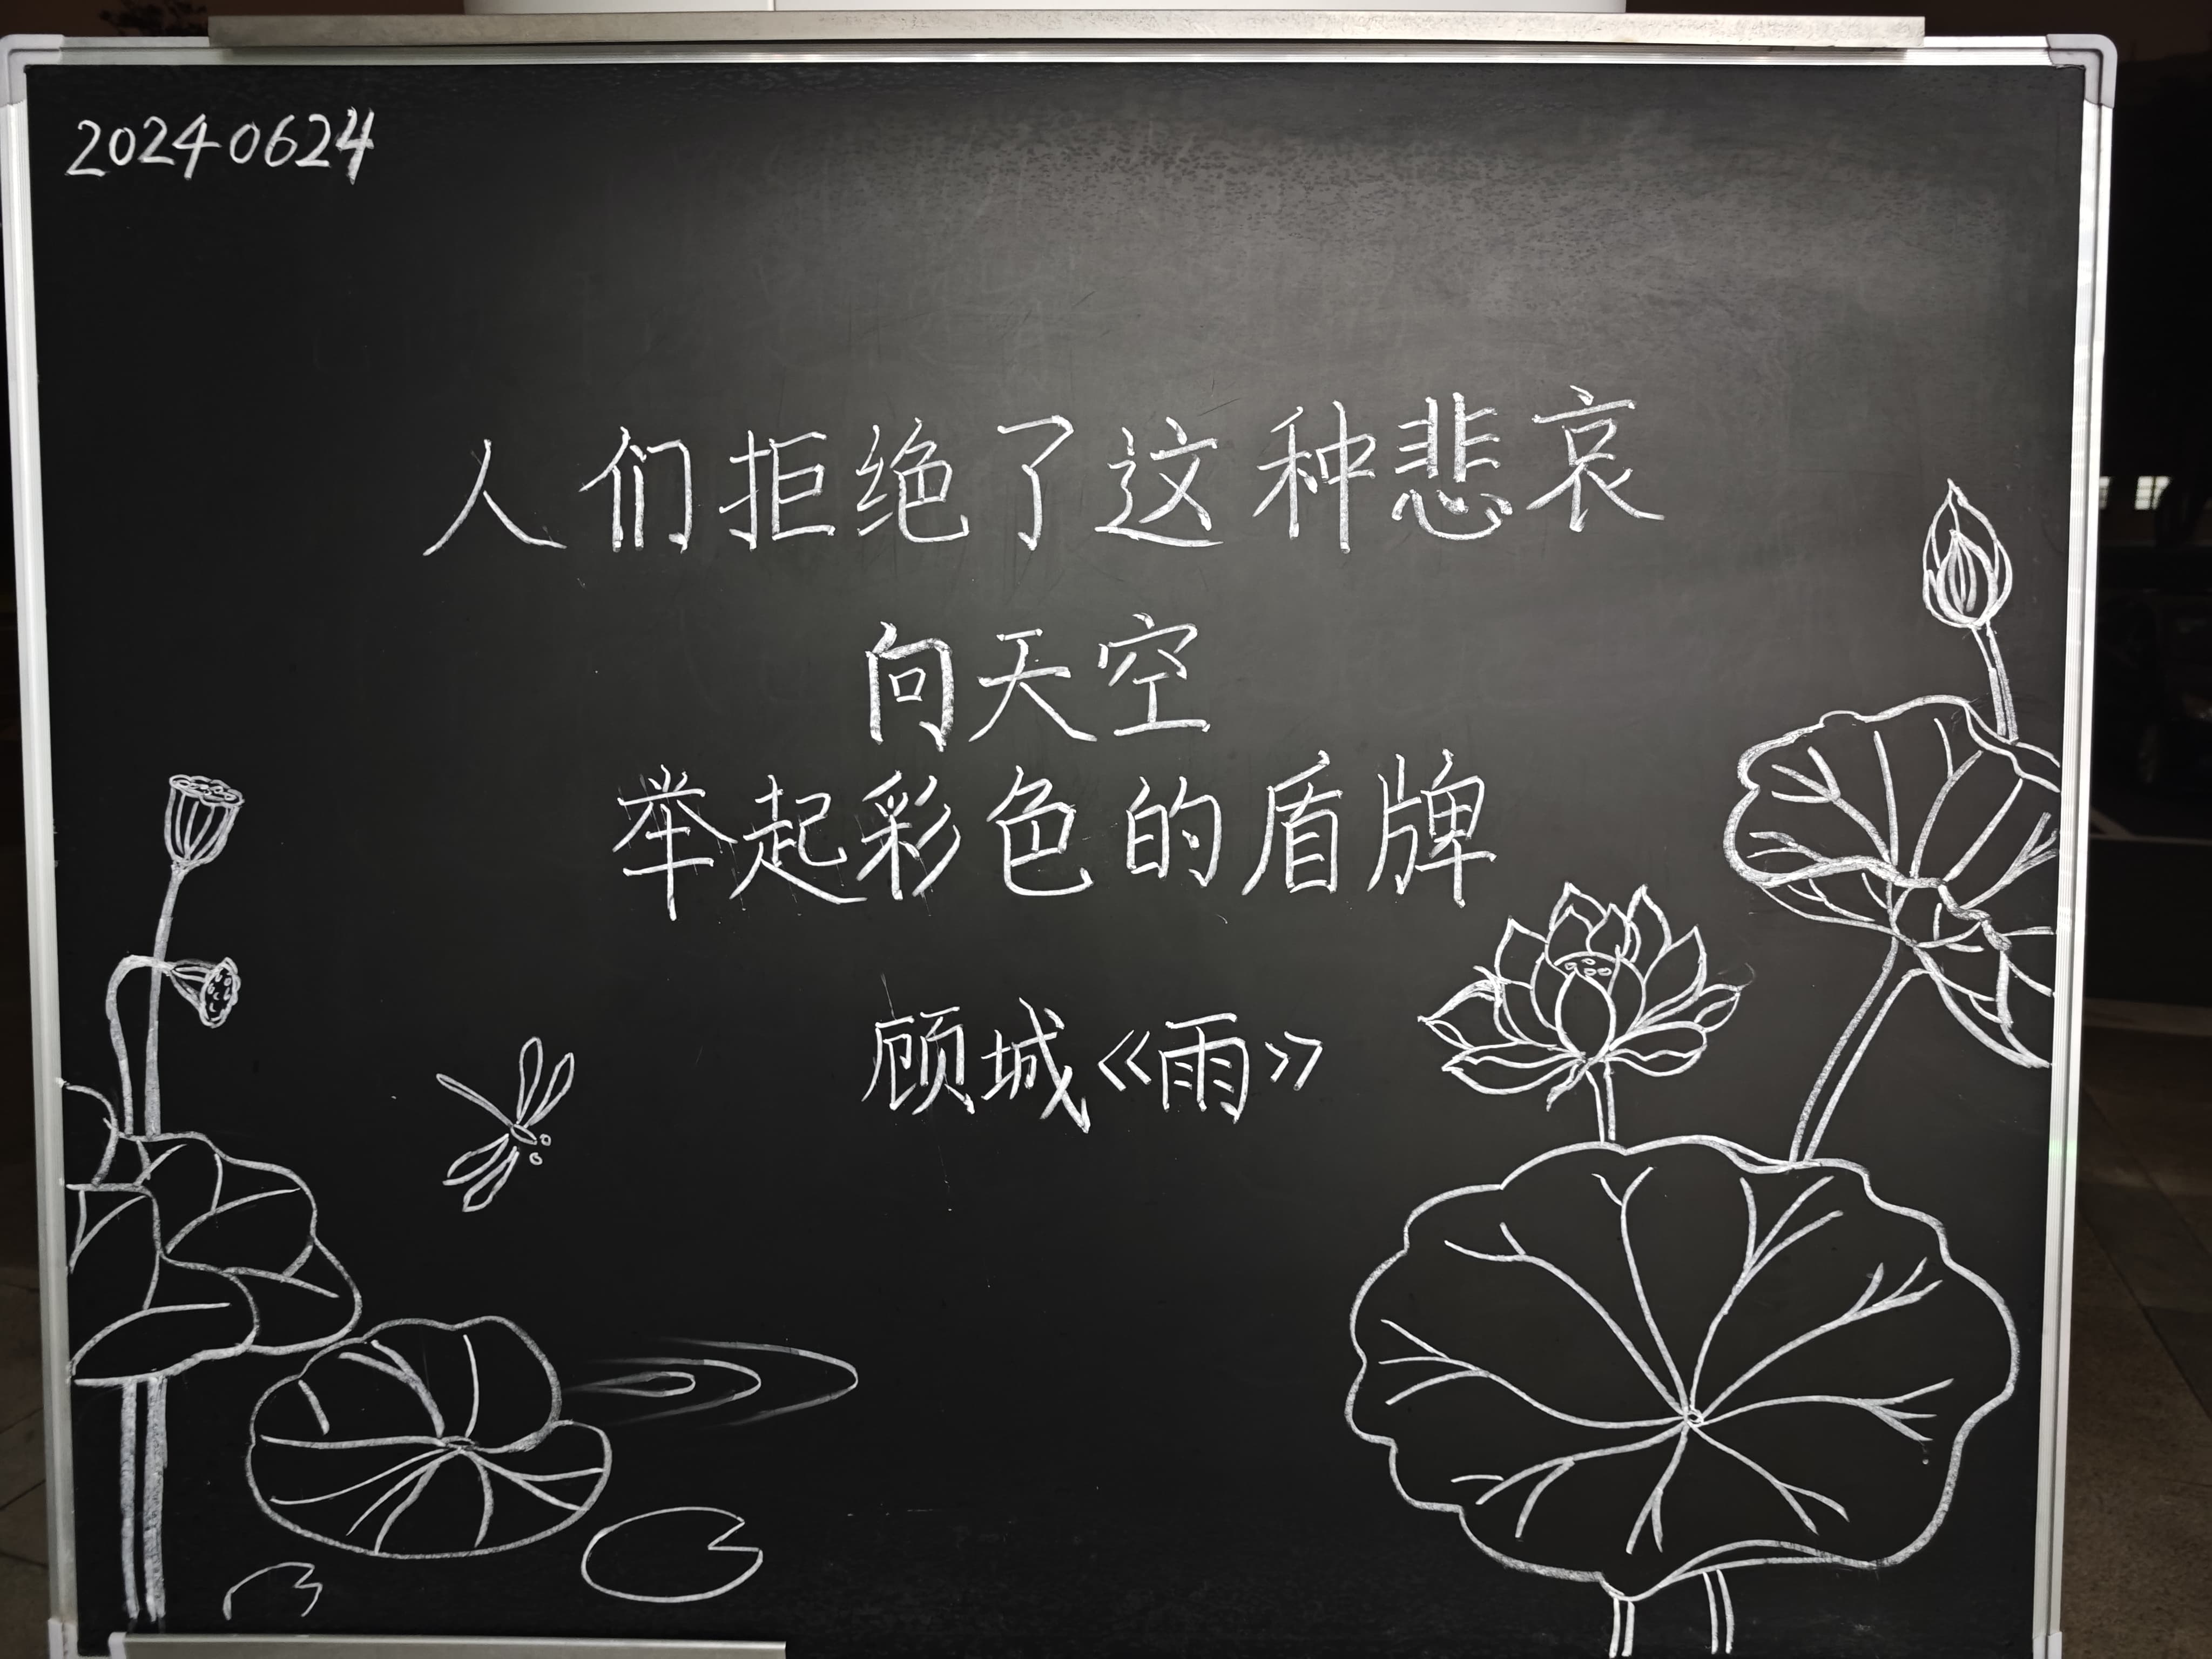 20240624
人们拒绝了这种悲哀
向天空
举起彩色的盾牌
顾城《雨》